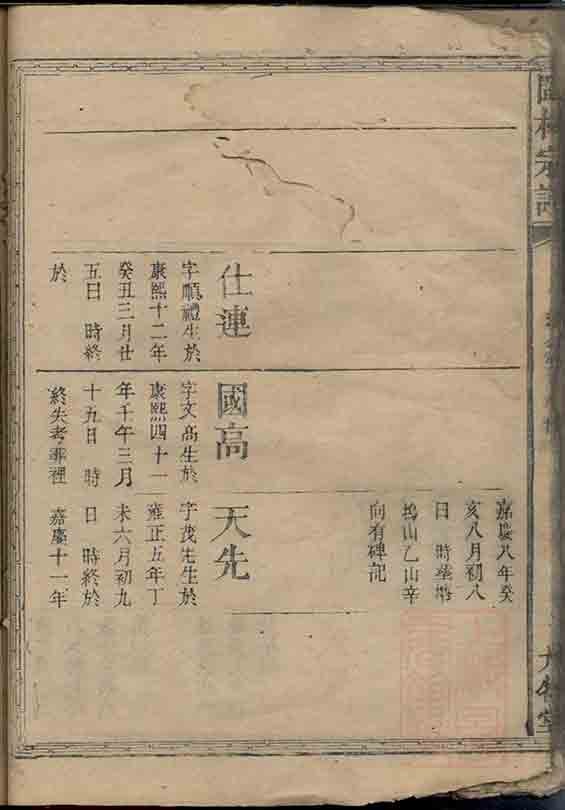 嘉慶八年癸
亥八月初八
日 時塟塘
塢山乙山辛
向有碑記
仕連
字順禮生於
康熙十二年
癸丑三月廿
五日 時終
於
國高
字文高生於
康熙四十一
年壬午三月
十五日 時
終失考塟裡
天先
字茂先生於
雍正五年丁
未六月初九
日 時終於
嘉慶十一年